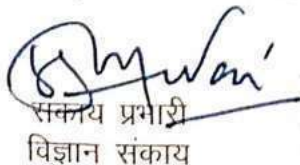 संकाय प्रभारी
विज्ञान संकाय